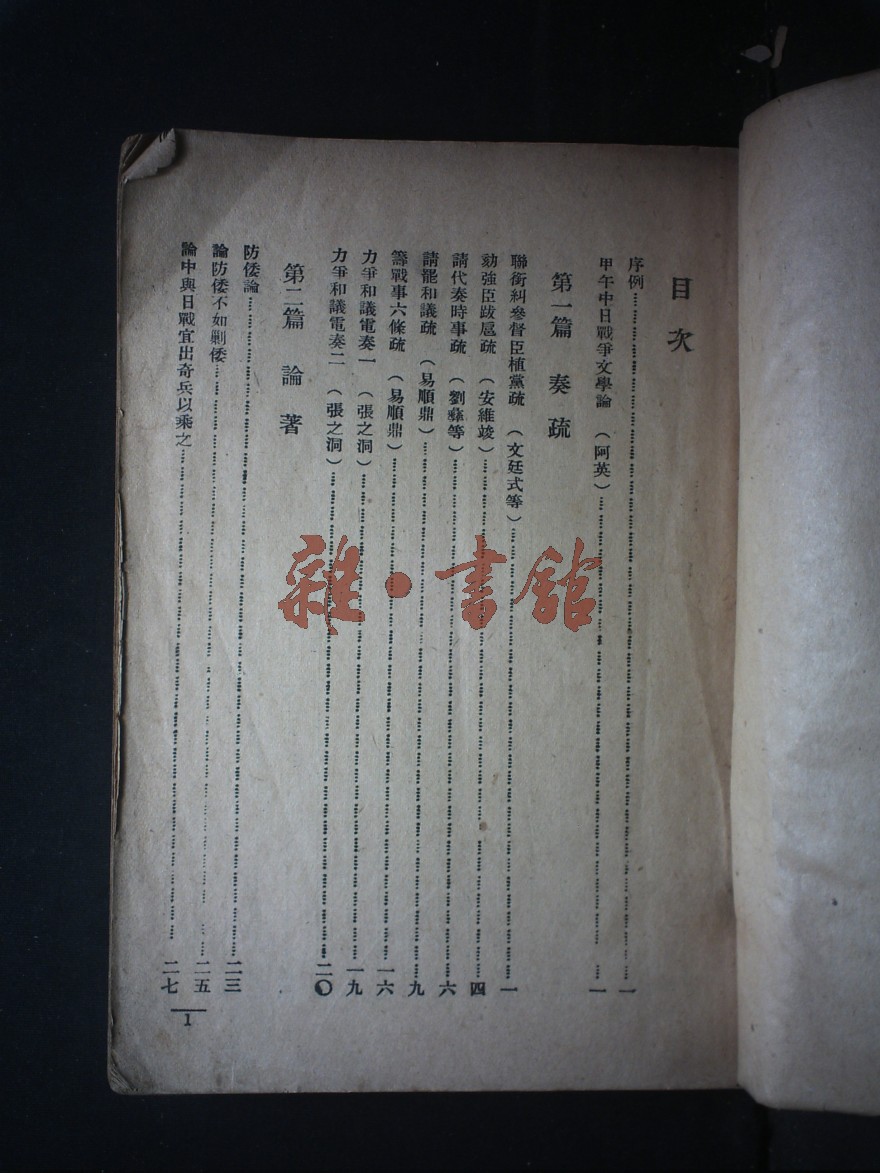 目次
序例……一
甲午中日戰爭文學論（阿英）……一
第一篇 奏疏
聯銜糾參督臣植黨疏（文廷式等）……一
劾強臣跋扈疏（安維峻）……四
請代奏時事疏（劉彝等）……六
請罷和議疏（易順鼎）……九
籌戰事六條疏（易順鼎）……一六
力爭和議電奏一（張之洞）……一九
力爭和議電奏二（張之洞）……二〇
第二篇 論著
防倭論……二三
論防倭不如剿倭……二五
論中與日戰宜出奇兵以乘之……二七
1
雜·書館